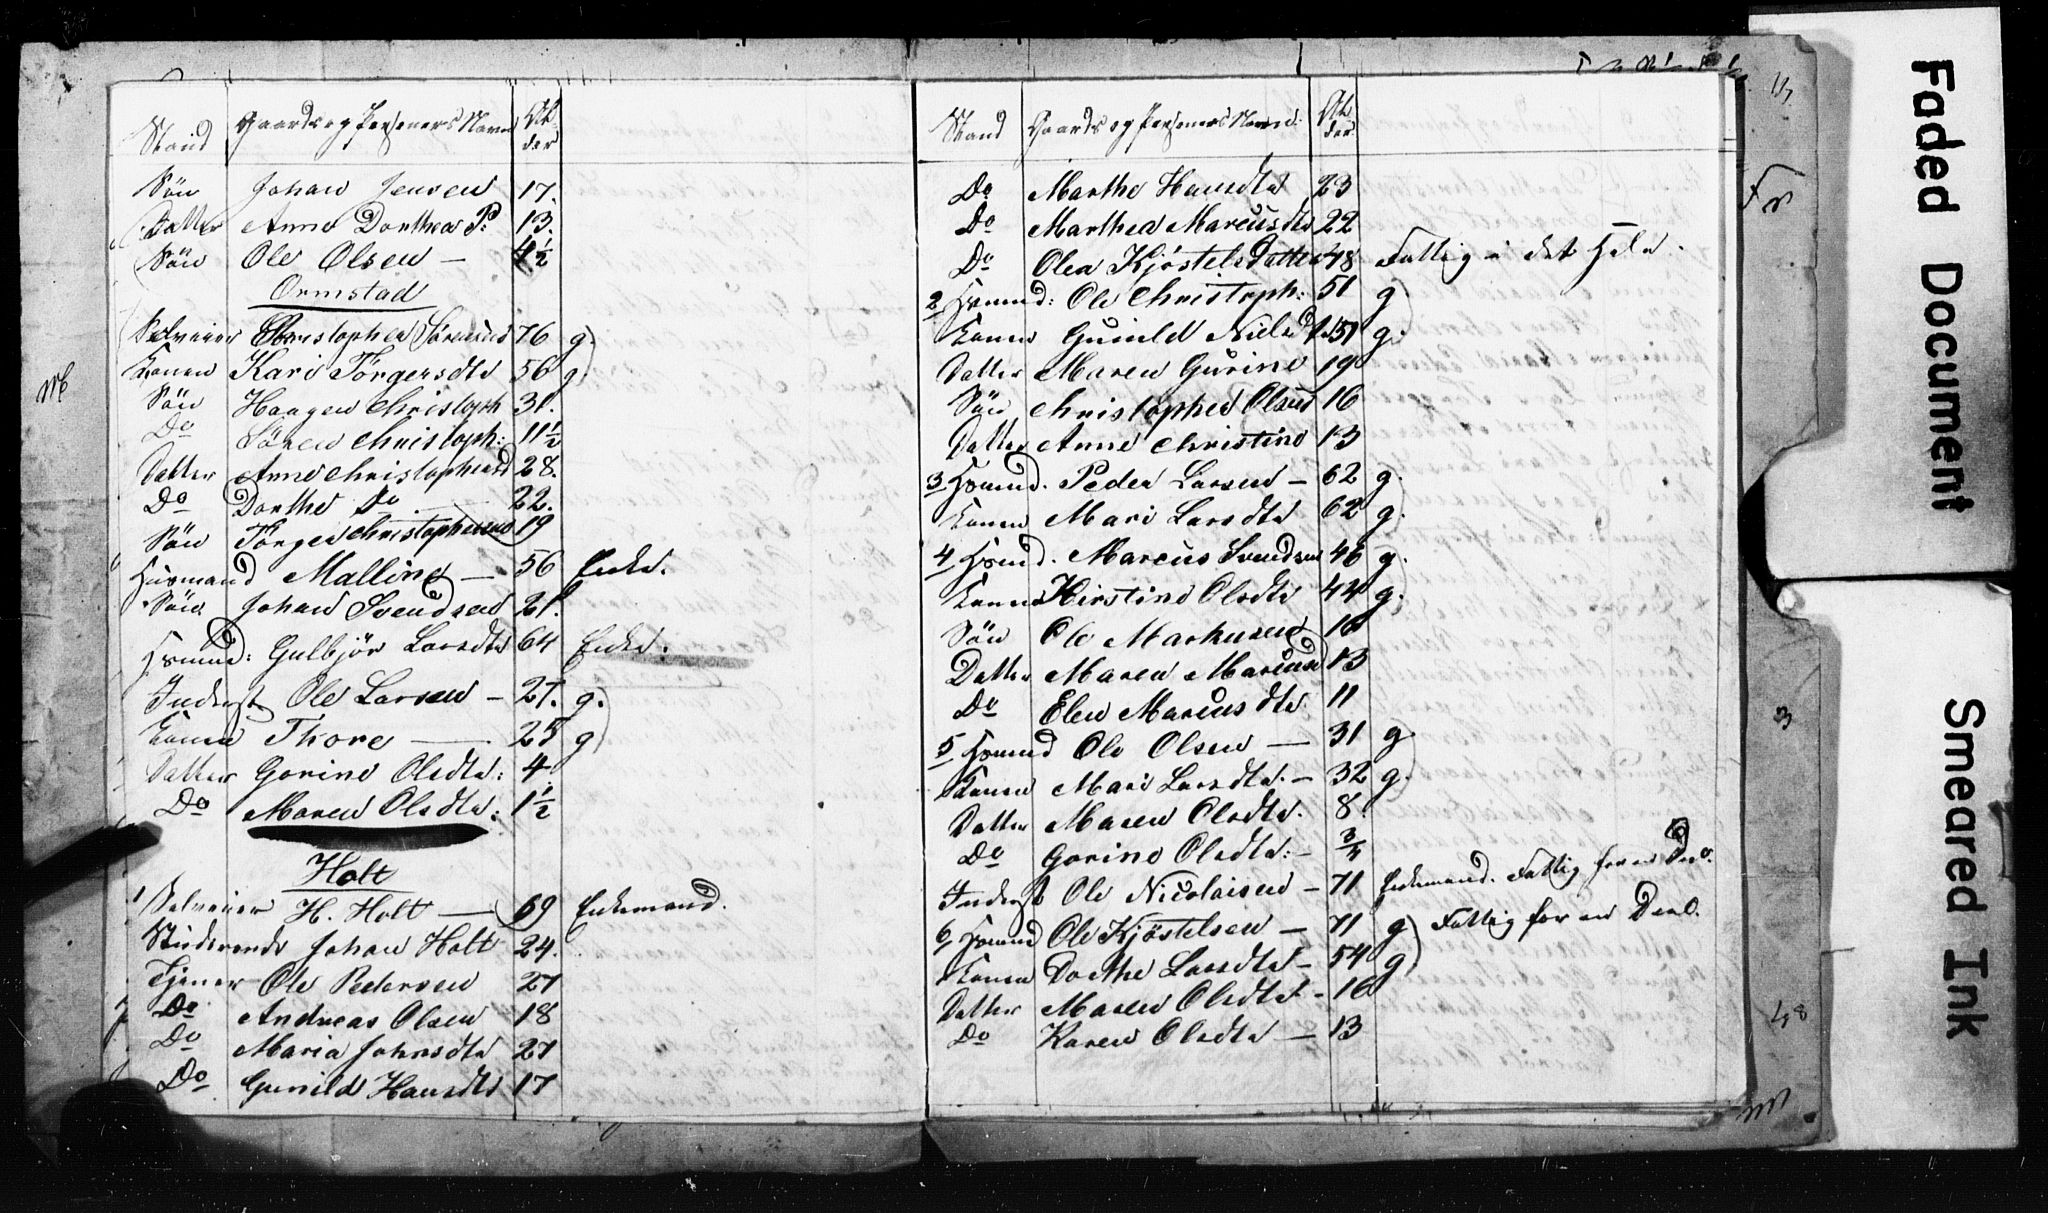 Stand Gaards og Personers Navne Alder
Sön Johan Jensen 17.
Datter Anne Dorthea P: 13.
Sön Ole Olsen — 4½
Ormstad
Selveier Christopher Sörensen 76 g.
Konen Kari Törgersdtr 56 g.
Sön Haagen Christoph 31.
Do Sören Christoph: 11½
Datter Anne Christophersd 28.
Do Dorthe Do — 22.
Sön Törger Christophersen 19
Husmand Malline — 56 Enke.
Sön Johan Svendsen 21.
Hsmnd: Gulbjör Larsdtr 64 Enke.
Inderst Ole Larsen — 27. g.
Konen Thore — 25 g
Datter Gorine Olsdtr: 4.
Do Maren Olsdtr: 1½
Holt
1 Selveier H. Holt — 69 Enkemand.
Studerende Johan Holt 24.
Tjener Ole Pedersen 27
Do Andreas Olsen 18
Do Maria Johnsdtr 27
Do Gunild Hansdtr 17
Stand Gaards og Personers Navne: Alder
Do Marthe Hansdtr 23
Do Marthea Marcusdtr 22
Do Olea Kjöstelsdatter 48 Fattig i det Hele.
2 Hsmnd: Ole Christoph: 51 g
Konen Gunild Nielsdtr 51 g.
Datter Maren Gurine 19
Sön Christopher Olsen 16
Datter Anne Christine 13
3 Hsmnd. Peder Larsen — 62 g.
Konen Mari Larsdtr 62 g.
4 Hsmnd. Marcus Svendsen 46 g.
Konen Kirstine Olsdtr 44 g.
Sön Ole Markusen 16
Datter Maren Marcusd 13
Do Elen Marcusdtr 11
5 Hsmnd Ole Olsen — 31 g.
Konen Mari Larsdtr. — 32 g.
Datter Maren Olsdtr. 8.
Do Gorine Olsdtr: — ¾
Inderst Ole Nicolaisen — 71 Enkemand. Fattig for en Deel.
6 Hsmnd Ole Kjöstelsen — 71 g Fattig for en Deel.
Konen Dorthe Larsdtr — 54 g
Datter Maren Olsdtr — 16
Do Karen Olsdtr — 13
Faded Document
Smeared Ink